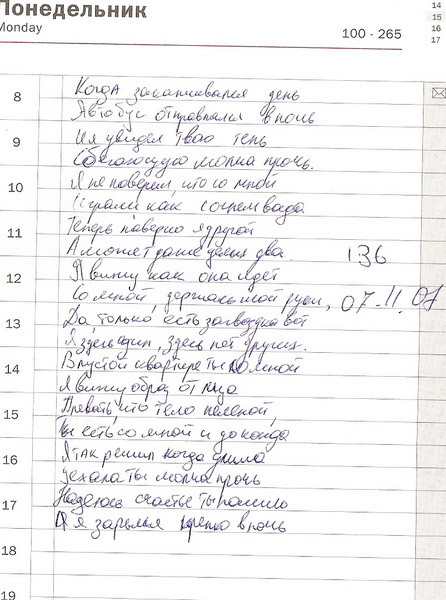 Понедельник
Monday
100 - 265
14
15
16
17
8
Когда заканчивался день
Автобус отправлялся в ночь
9
И я увидел твою тень
Сбегающую молча прочь.
10
Я не поверил, что со мной
Играли как с огнем вода
11
Теперь наверно я другой
А может даже целых два
136
12
Я вижу как она идет
Со мной, держась мой руки,
07-11.07
13
Да, только есть загвоздка вот
Я здесь один, здесь нет других.
14
В пустой квартире ты со мной
Я вижу образ от лица
15
Плевать, что тело пеленой,
Ты есть со мной и до конца
16
Я так решил когда ушла
Уехала ты молча прочь
17
Надеюсь счастье ты нашла
А я зарылся крепко в ночь
18
19